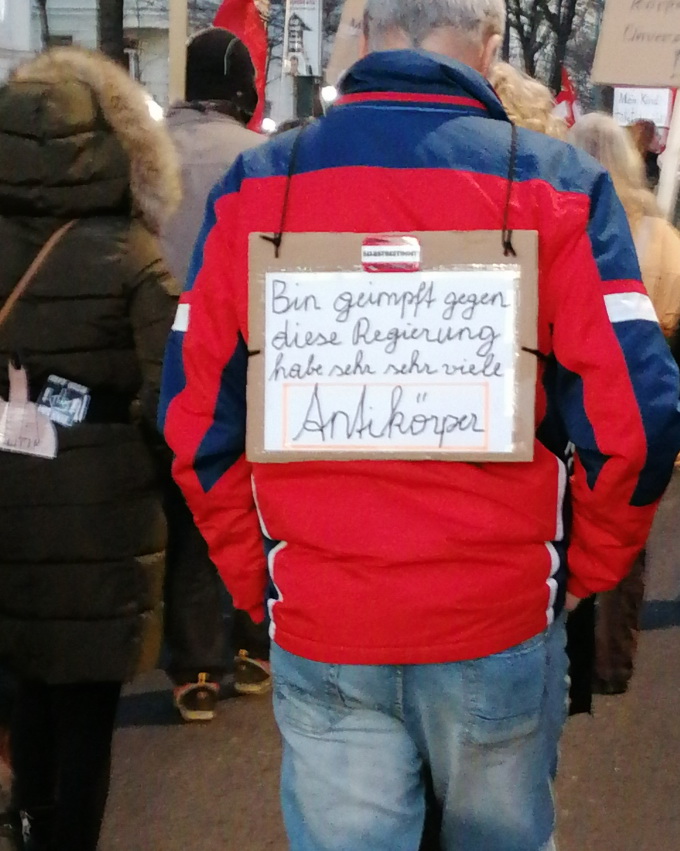 SELBSTBESTIMMT
Bin geimpft gegen
diese Regierung
habe sehr sehr viele
Antikörper
Mein Kind